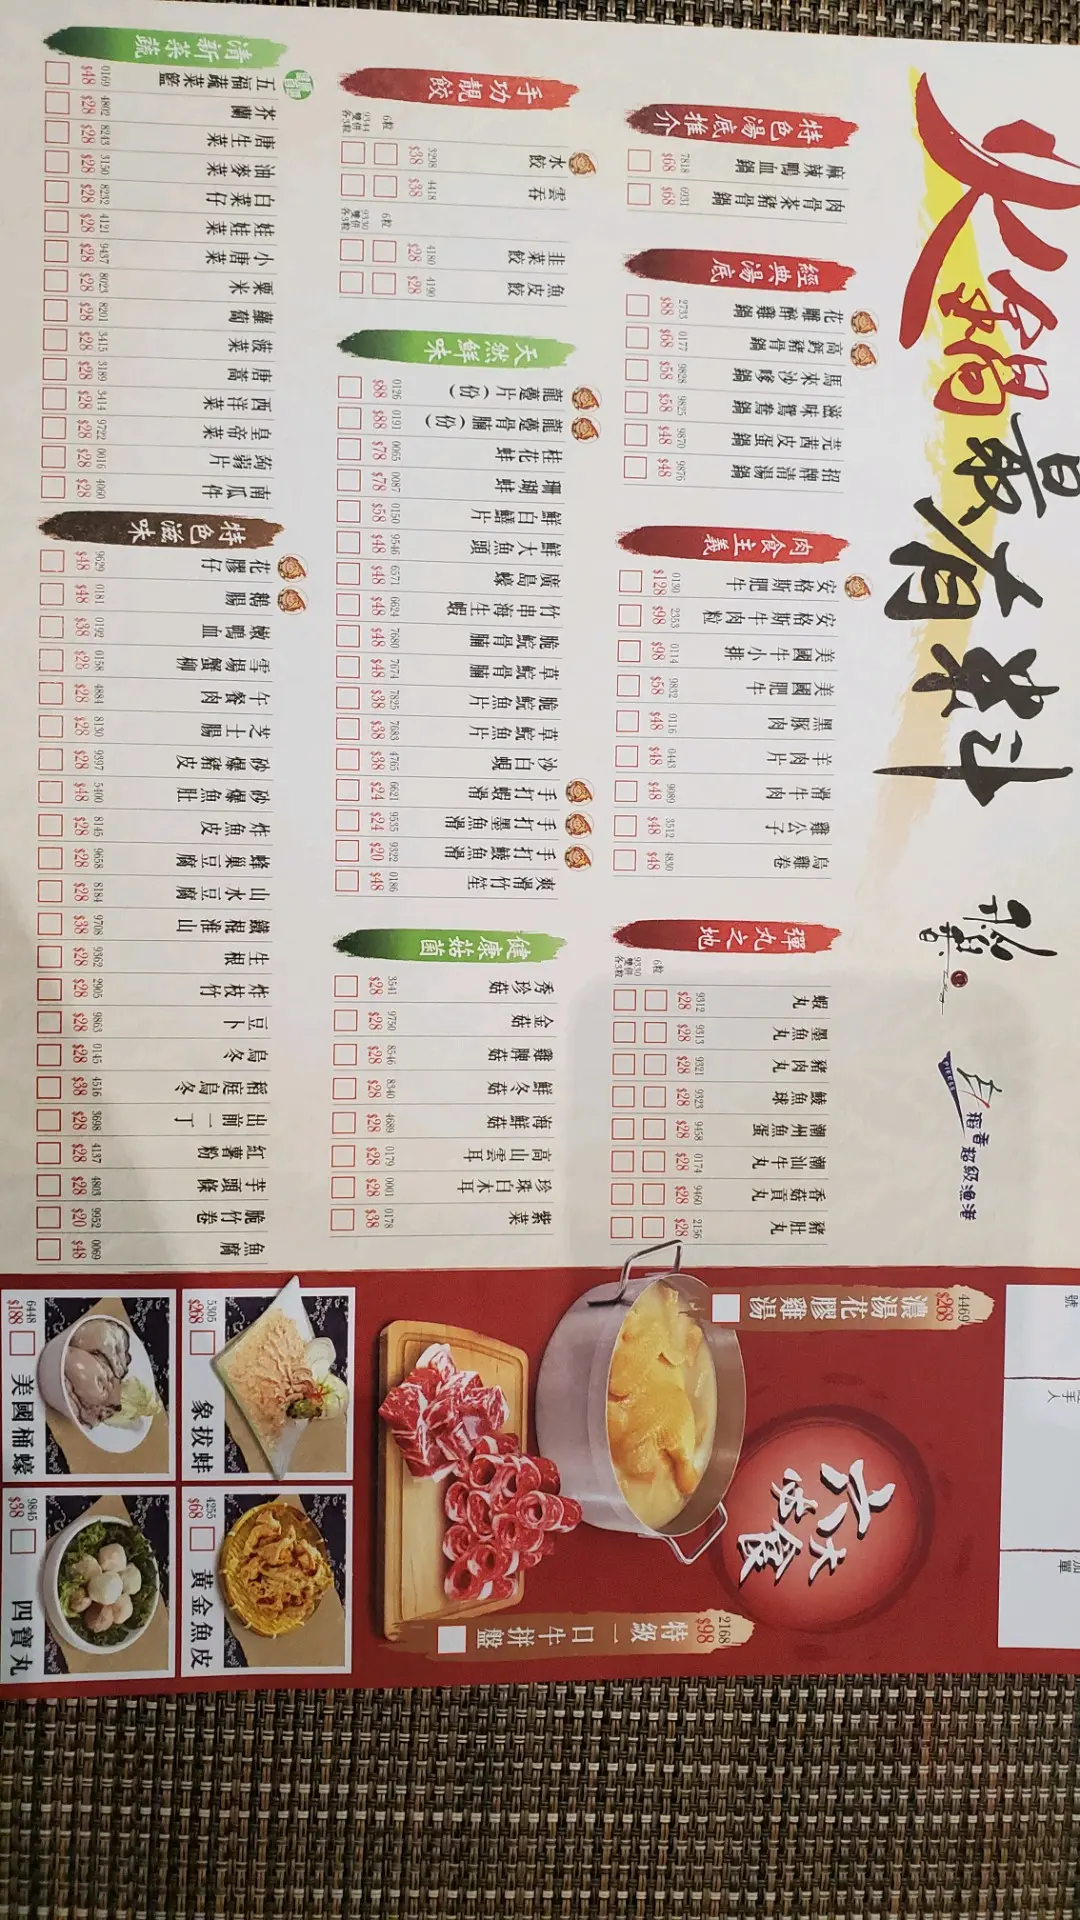 火鍋最有料
稻香超級漁港
特色湯底推介
麻辣鴨血鍋 7818 $68
肉骨茶豬骨鍋 6931 $68
經典湯底
花雕醉雞鍋 2733 $88
高鈣豬骨鍋 0177 $68
馬來沙嗲鍋 9828 $58
滋味鴛鴦鍋 9825 $58
芫茜皮蛋鍋 9870 $48
招牌清湯鍋 9876 $48
肉食主義
安格斯肥牛 0130 $128
安格斯牛肉粒 2353 $98
美國牛小排 0114 $98
美國肥牛 9832 $58
黑豚肉 0116 $48
羊肉片 0443 $48
滑牛肉 9089 $48
雞公子 3512 $48
烏雞卷 4830 $48
彈丸之地
6粒 9330 雙併 各3粒
蝦丸 9312 $28
墨魚丸 9313 $28
豬肉丸 9321 $28
鯪魚球 9323 $28
潮州魚蛋 9458 $28
潮汕牛丸 0174 $28
香菇貢丸 9460 $28
豬肚丸 2156 $28
手功靚餃
6粒 9344 雙併 各3粒
水餃 3298 $38
雲吞 4418 $38
6粒 9330 雙併 各3粒
韭菜餃 4180 $28
魚皮餃 4190 $28
天然鮮味
龍躉片(份) 0126 $88
龍躉骨腩(份) 0191 $88
桂花蚌 0065 $78
珊瑚蚌 0087 $78
鮮白鱔片 0150 $58
鮮大魚頭 9546 $48
廣島蠔 6571 $48
竹串海生蝦 6624 $48
脆鯇骨腩 7680 $48
草鯇骨腩 7674 $48
脆鯇魚片 7825 $38
草鯇魚片 7683 $38
沙白蜆 4765 $38
手打蝦滑 6621 $24
手打墨魚滑 9535 $24
手打鯪魚滑 9322 $20
爽滑竹笙 0186 $48
健康菇菌
秀珍菇 3541 $28
金菇 9750 $28
雞脾菇 8546 $28
鮮冬菇 8340 $28
海鮮菇 4689 $28
高山雲耳 0179 $28
珍珠白木耳 0001 $28
紫菜 0178 $38
清新菜蔬
五福蔬菜籃 0169 $48
芥蘭 4802 $28
唐生菜 8243 $28
油麥菜 3150 $28
白菜仔 8232 $28
娃娃菜 4121 $28
小唐菜 9437 $28
粟米 8023 $28
蘿蔔 8201 $28
菠菜 3415 $28
唐蒿 3189 $28
西洋菜 3414 $28
皇帝菜 9722 $28
蒟蒻片 0016 $28
南瓜件 4060 $28
特色滋味
花膠仔 9629 $48
鵝腸 0181 $48
嫩鴨血 0192 $38
雪場蟹柳 0158 $28
午餐肉 4884 $28
芝士腸 8130 $28
砂爆豬皮 9397 $28
砂爆魚肚 5400 $48
炸魚皮 8145 $28
蜂巢豆腐 9658 $28
山水豆腐 8184 $28
鐵棍淮山 9708 $38
生根 9362 $28
炸枝竹 2905 $28
豆卜 9863 $28
烏冬 0145 $28
稻庭烏冬 4516 $38
出前一丁 3698 $28
紅薯粉 4137 $28
芋頭條 4803 $28
脆竹卷 9952 $20
魚腐 0069 $48
六大必食
濃湯花膠雞湯 4469 $268
特級一口牛拼盤 2168 $98
象拔蚌 5305 $268
黃金魚皮 4255 $68
美國桶蠔 6448 $188
四寶丸 9845 $38